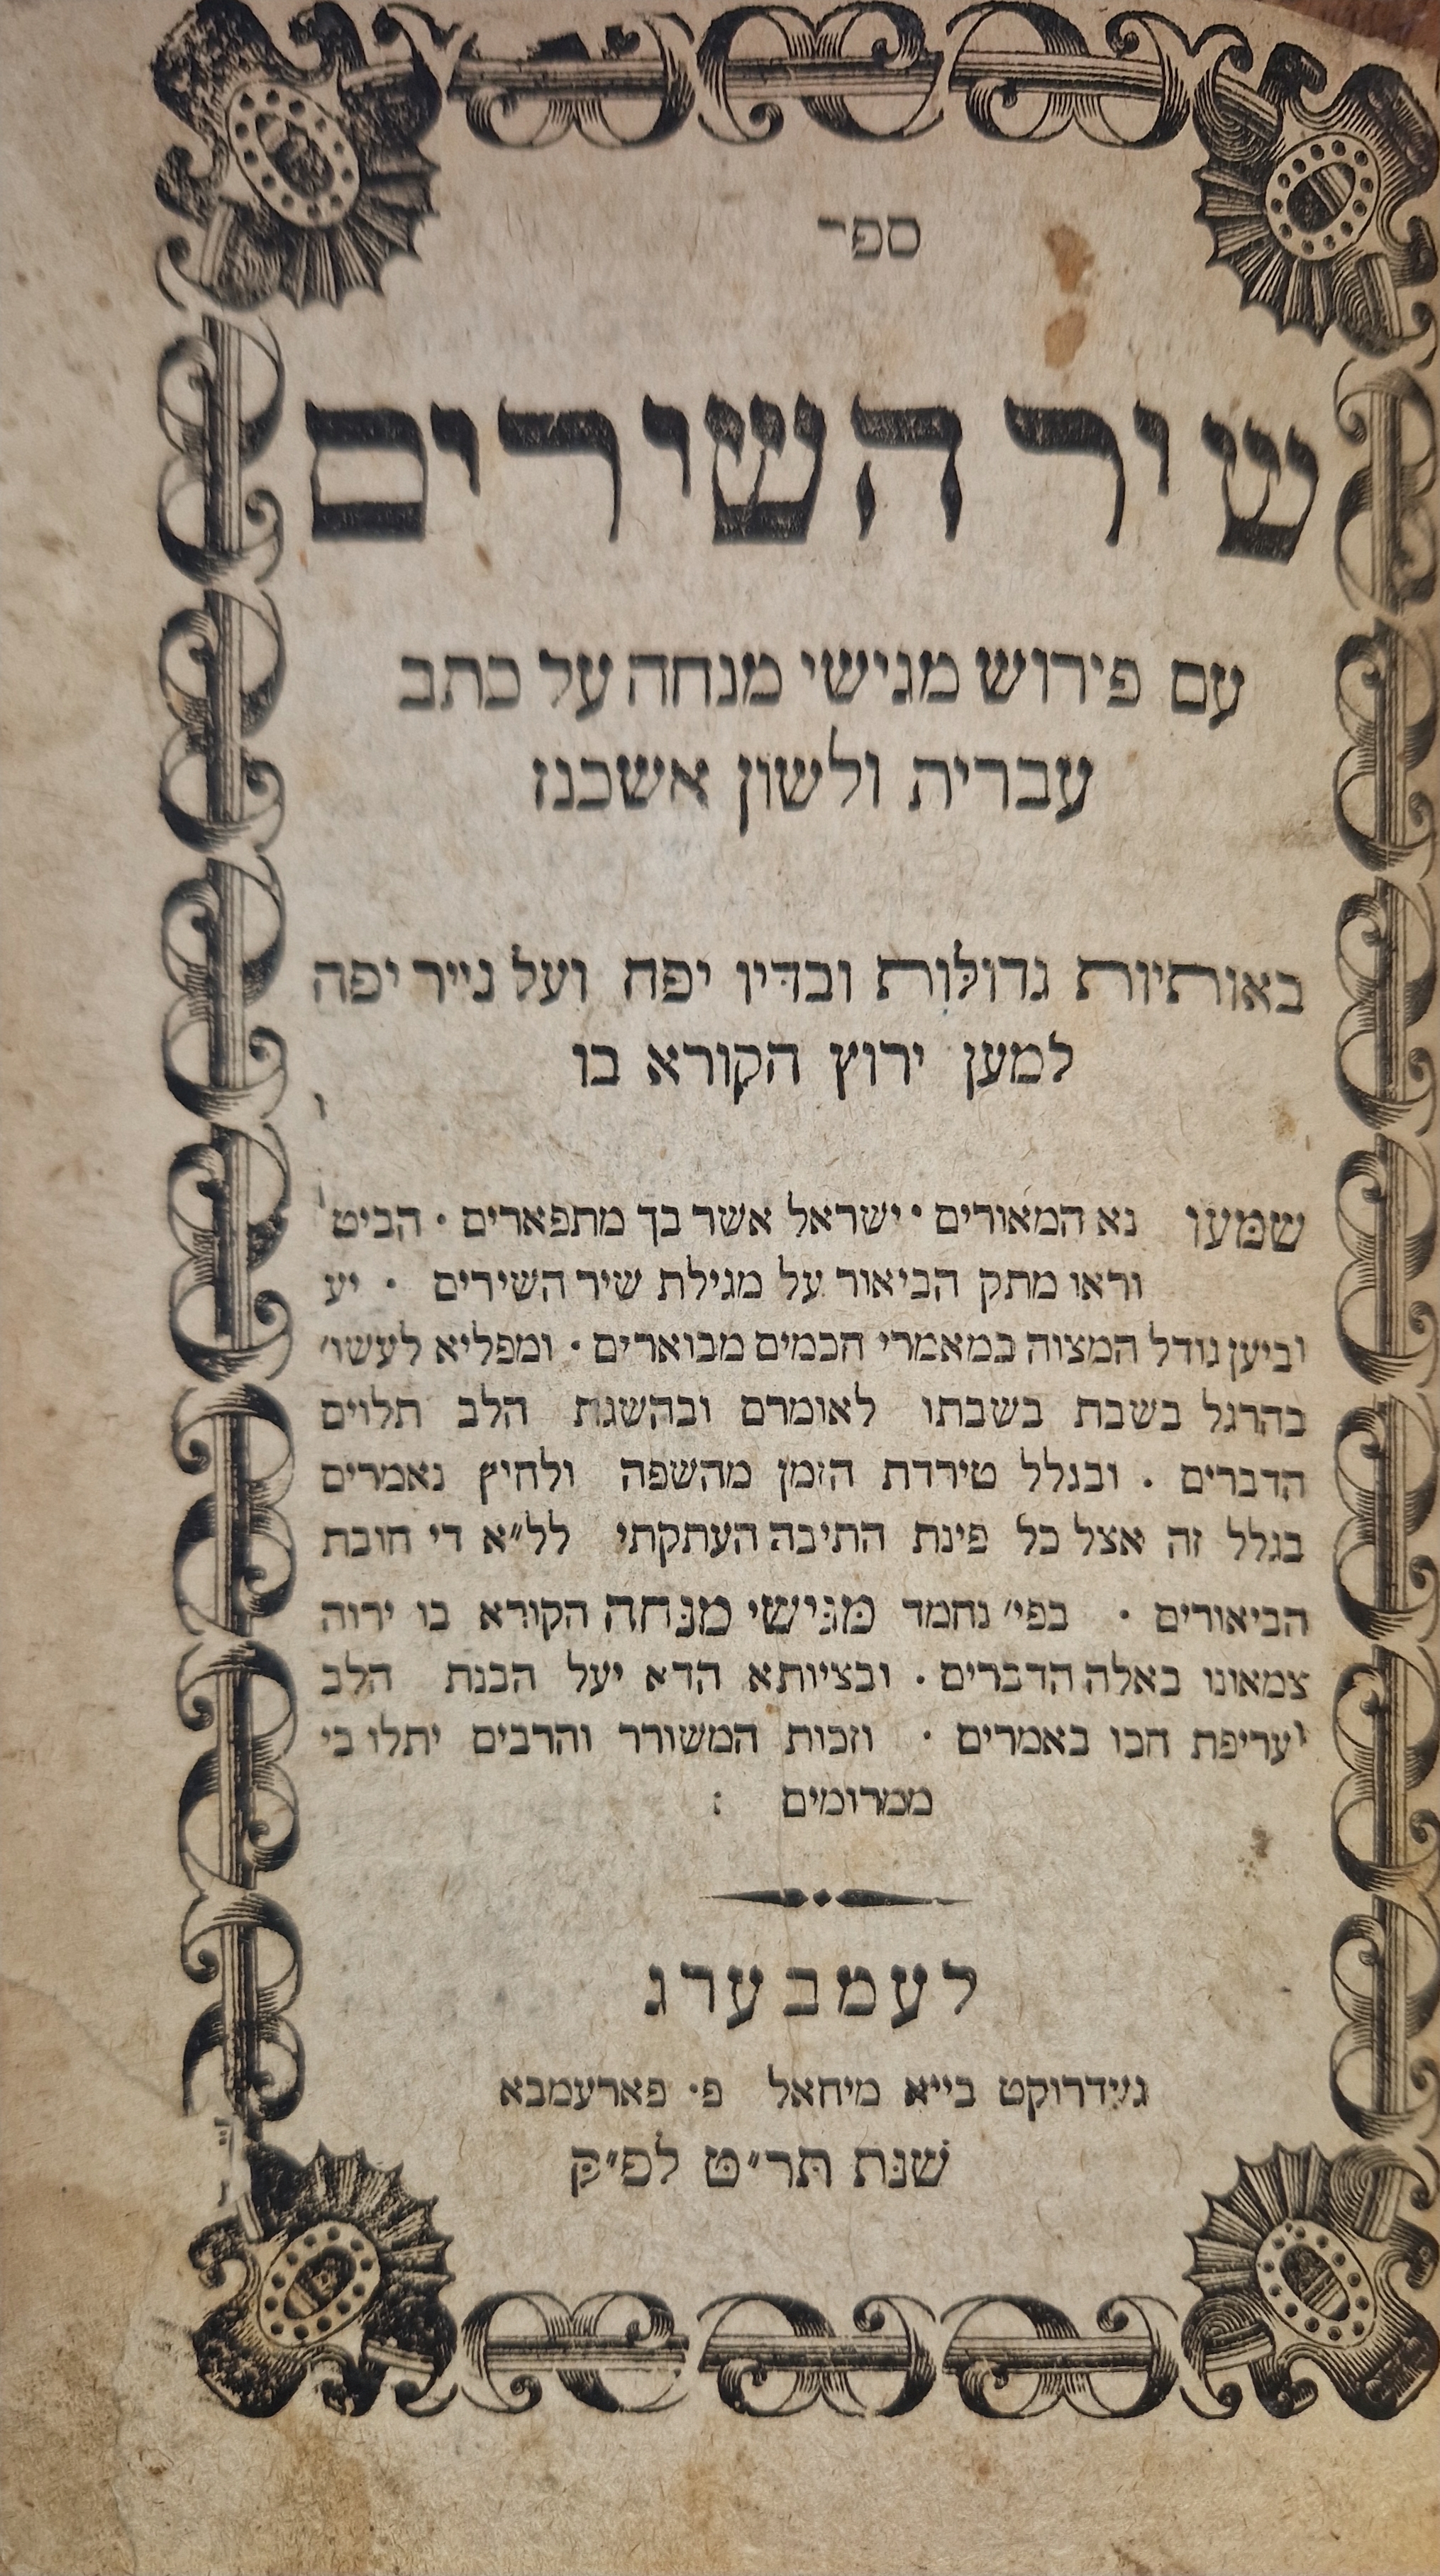 ספר
שיר השירים
עם פירוש מגישי מנחה על כתב
עברית ולשון אשכנז
באותיות גדולות ובדיו יפה ועל נייר יפה
למען ירוץ הקורא בו
שמעו נא המאורים · ישראל אשר בך מתפארים · הביט
וראו מתק הביאור על מגילת שיר השירים · יע
וביען גודל המצוה במאמרי חכמים מבוארים · ומפליא לעשו׳
בהרגל בשבת בשבתו לאומרם ובהשגת הלב תלוים
הדברים . ובגלל טירדת הזמן מהשפה ולחיץ נאמרים
בגלל זה אצל כל פינת התיבה העתקתי לל״א די חובת
הביאורים · בפי׳ נחמד מגישי מנחה הקורא בו ירוה
צמאונו באלה הדברים · ובציותא הדא יעל הבנת הלב
עריפת חכו באמרים · וזכות המשורר והרבים יתלו בי
ממרומים :
לעמבערג
געדרוקט בייא מיחאל פ· פארעמבא
שנת תר״ט לפ״ק